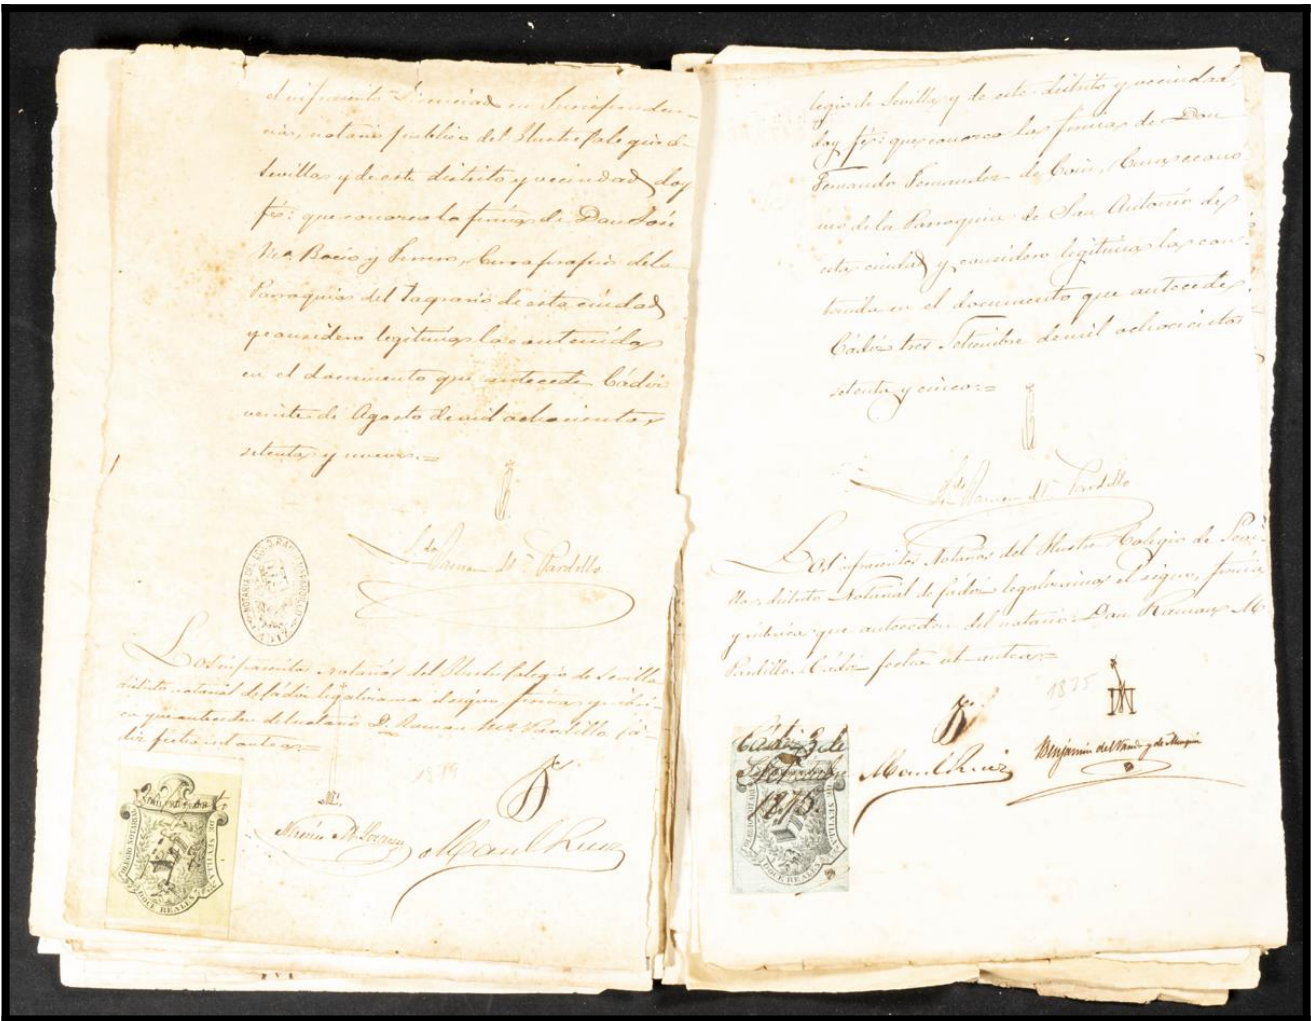 el infrascrito Licenciado en Jurispruden-
cia, notario publico del Ilustre Colegio de
Sevilla y de este distrito y vecindad doy
fé: que conozco la firma de Don José
Mª. Bocio y Ferrero, Cura propio de la
Parroquia del Sagrario de esta ciudad
y considero legitima la contenida
en el documento que antecede Cádiz
veinte de Agosto de mil ochocientos
setenta y nueve.=
Ldo. Ramon Mª. Pardillo
Los infrascritos notarios del Ilustre Colegio de Sevilla
distrito notarial de Cádiz legalizamos el signo, firma y rúbri-
ca que anteceden del notario D. Ramon Mª. Pardillo Cá-
diz fecha ut antea.=
1879
COLEGIO NOTARIAL
DE SEVILLA
DOCE REALES
Manl. Ruiz
legio de Sevilla y de este distrito y vecindad,
doy fé: que conozco la firma de Don
Fernando Fernandez de Cosio, Cura econó-
mo de la Parroquia de San Antonio de
esta ciudad y considero legitima la con-
tenida en el documento que antecede
Cádiz tres Setiembre de mil ochocientos
setenta y cinco.=
Ldo. Ramon Mª. Pardillo
Los infrascritos Notarios del Ilustre Colegio de Sevi-
lla, distrito Notarial de Cádiz legalizamos el signo, firma
y rúbrica que anteceden del notario Don Ramon M
Pardillo. Cádiz fecha ut antea=
1875
Cádiz 3 de
Setiembre
1875.
COLEGIO NOTARIAL
DE SEVILLA
DOCE REALES
Manl. Ruiz
Benjamin del